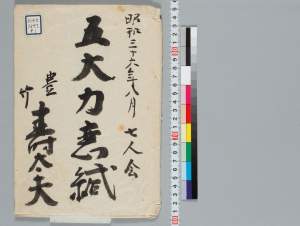 昭和三十六年八月 七人会
五大力恋緘
豊竹
寿太夫